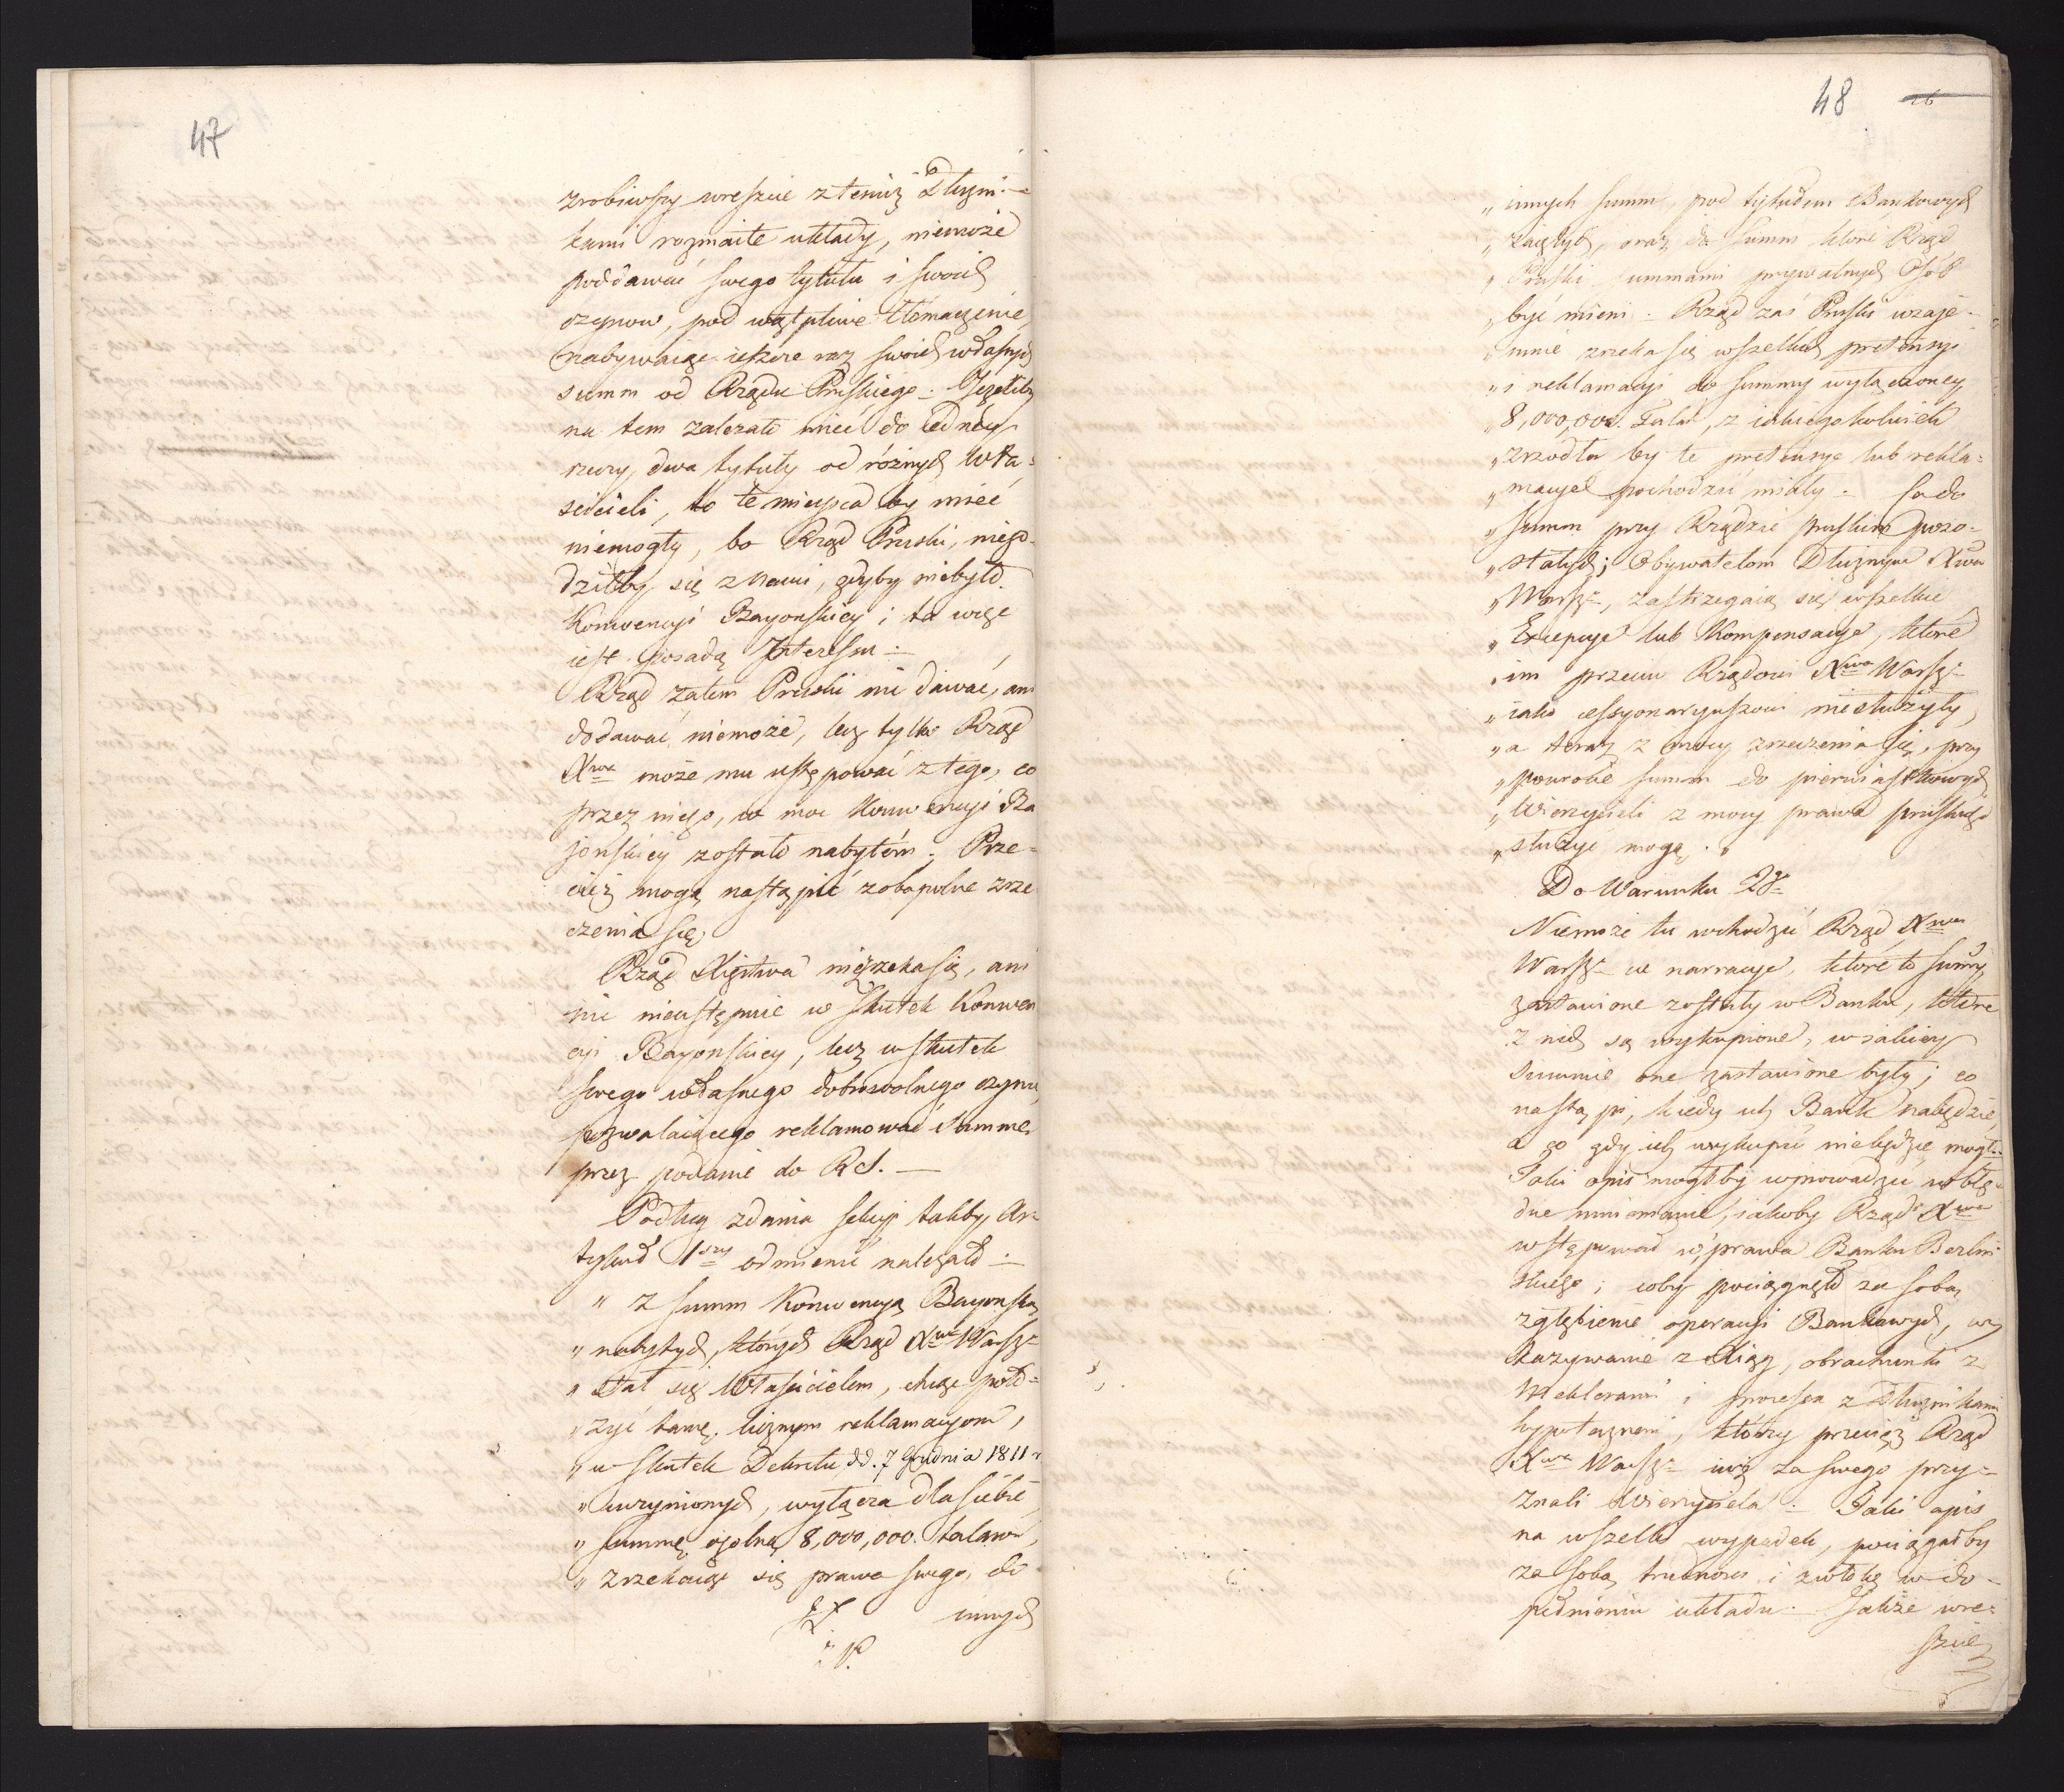 47
zrobiwszy wreszcie z temiż Dłużni-
kami rozmaite układy, niemoże
poddawać swego tytułu i swoich
czynow, pod wątpliwe tłómaczenie,
nabywaiąc ieszcze raz swoich własnych
summ od Rządu Pruskiego. Jeżeliby
na tem zależało mieć do iednéy
rzeczy, dwa tytuły od różnych Wła-
ścicieli, to te mieysca by mieć
niemogły, bo Rząd Pruski, niego-
dziłby się z Nami, gdyby niebyło
Konwencyi Bayonskiey; ta więc
iest posadą Interessu.
Rząd zatem Pruski nic dawać, ani
dodawać niemoże, lecz tylko Rząd
Xwa może mu ustępować z tego, co
przez niego, w moc Konwencyi Ba
jonskiey zostało nabytém; Prze-
cież mogą nastąpić zobopolne zrze
czenia się.
Rząd Xięstwa niezrzeka się, ani
nic nieustępuie w skutek Konwen
cyi Bayonskiey, lecz w skutek
swego własnego dobrowolnego czynu,
pozwalaiącego reklamować summe
przez podanie do R S.
Podług zdania sekcyi takby, Ar-
tykuł 1szy odmienić należało
" z summ Konwencyą Bayonską
" nabytych, których Rząd Xwa Warsz:
" stał się Właścicielem, chcąc poło-
" żyć tamę licznym reklamacyom,
" w skutek Dekretu dd. 7 Grudnia 1811 r
" uczynionych, wyłącza dla siebie
" summę ogolną 8,000,000. talarów,
" zrzekaiąc się prawa swego, do
innych
48
26
" innych summ, pod tytułem Bankowych
" zaiętych, oraz do summ które Rząd
" Pruski summami prywatnych Osób
" być mieni. Rząd zaś Pruski wzaje-
" mnie zrzeka się wszelkich pretensyi
" i reklamacyi do summy wyłączoney
" 8,000,000. Talar, z iakiegokolwiek
" zrzodła by te pretensye lub rekla-
" macye pochodzić miały. Co do
" summ przy Rządzie pruskim pozo-
" stałych; Obywatelom Dłużnym Xwa
" Warsz:, zastrzegaią się wszelkie
" Excepcye lub Kompensacye, które
" im przeciw Rządowi Xwa Warsz:
" iako cessyonaryuszowi niesłużyły,
" a teraz z mocy zrzeczenia się, przy
" powrocie summ do pierwiastkowych
" Wierzycieli z mocy prawa pruskiego
" służyć mogą.
Do Warunku 2go
Niemoże tu wchodzić Rząd Xwa
Warsz: w narracye, które to summy
zastawione zostały w Banku, które
z nich są wykupione, w iakiey
summie one zastawione były; co
nastąpi, kiedy ich Bank nabędzie,
a co gdy ich wykupić niebędzie mogł.
Taki opis mogłby wprowadzić w błę-
dne mniemanie, iakoby Rząd Xwa
wstępował w prawa Banku Berlin-
skiego; coby pociągnęło za sobą
zgłębienie operacyi Bankowych, wy
kazywanie z Xiąg, obrachunki z
Meklerami i processa z Dłużnikami
hypotecznemi, którzy przecież Rząd
Xwa Warsz: iuż za swego przy-
znali Wierzyciela. Taki opis
na wszelki wypadek, pociągałby
za sobą trudności i zwłokę w do-
pełnieniu układu. Jakże wre-
szcie